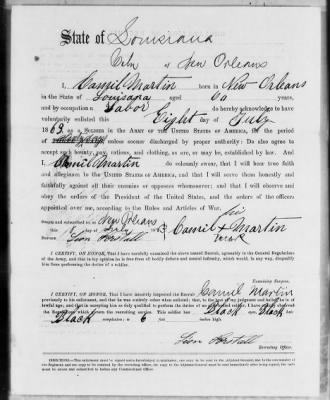 State of Louisiana
City of New Orleans
I, Camil Martin born in New Orleans
in the State of Louisiana aged years,
and by occupation a Labor do hereby acknowledge to have
voluntarily enlisted this Eight day of July
1863 as a Soldier in the Army of the United States of America, for the period
unless sooner discharged by proper authority: Do also agree to
accept such bounty, pay, rations, and clothing, as are, or may be, established by law. And
I, Camil Martin do solemnly swear, that I will bear true faith
and allegiance to the United States of America, and that I will serve them honestly and
faithfully against all their enemies or opposers whomsoever; and that I will observe and
obey the orders of the President of the United States, and the orders of the officers
appointed over me, according to the Rules and Articles of War.
Sworn and subscribed to, at New Orleans his
this day of July Camil + Martin
Before Leon Forstall mark
I certify, on honor, That I have carefully examined the above named Recruit, agreeably to the General Regulations
of the Army, and that in my opinion he is free from all bodily defects and mental infirmity, which would, in any way, disqualify
him from performing the duties of a soldier.
Examining Surgeon.
I certify, on honor, That I have minutely inspected the Recruit, Camil Martin
previously to his enlistment, and that he was entirely sober when enlisted; that, to the best of my judgment and belief, he is of
lawful age; and that, in accepting him as duly qualified to perform the duties of an able-bodied soldier, I have strictly observed
the Regulations which govern the recruiting service. This soldier has Black eyes, Black hair,
Black complexion, is 6 feet inches high.
Leon Forstall
Recruiting Officer.